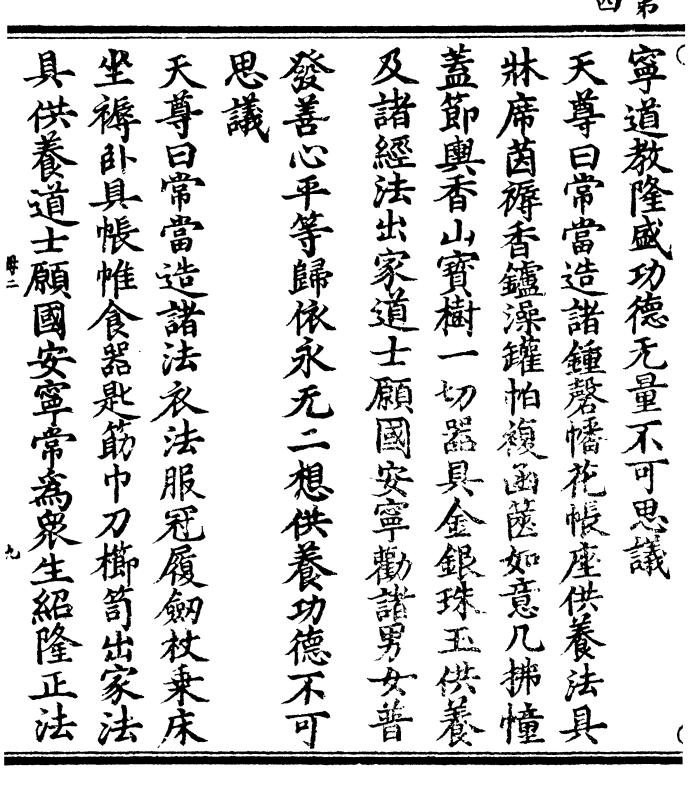 第
四
寧道教隆盛功德无量不可思議
天尊曰常當造諸鍾磬幡花帳座供養法具
牀席茵褥香鑪澡鑵帕複函篋如意几拂幢
蓋節輿香山寶樹一切器具金銀珠玉供養
及諸經法出家道士願國安寧勸諸男女普
發善心平等歸依永无二想供養功德不可
思議
天尊曰常當造諸法衣法服冠履劒杖乗床
坐褥卧具帳帷食器匙筯巾刀櫛笥出家法
具供養道士願國安寧常為衆生紹隆正法
九